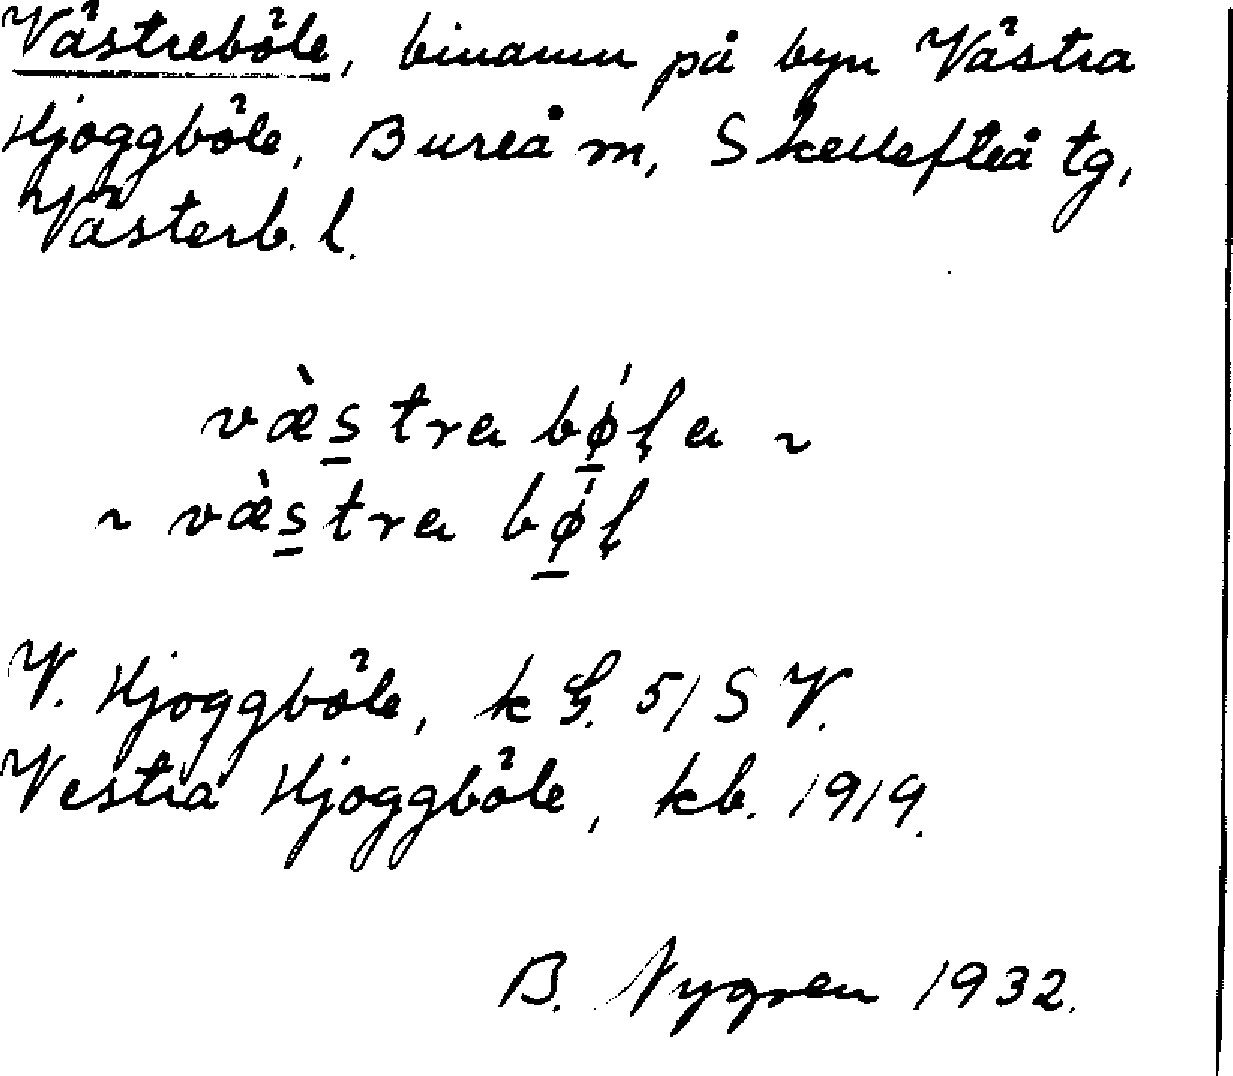 Västreböle, binamn på byn Västra
Hjoggböle, Bureå m, Skellefteå tg,
Västerb. l.
væ̀s̲trɐ bǿ̲ɭɐ ~
~ væ̀s̲trɐ bǿ̲ɭ
V. Hjoggböle, k G. 51 S V.
Vestra Hjoggböle, kb. 1919.
B. Nygren 1932.